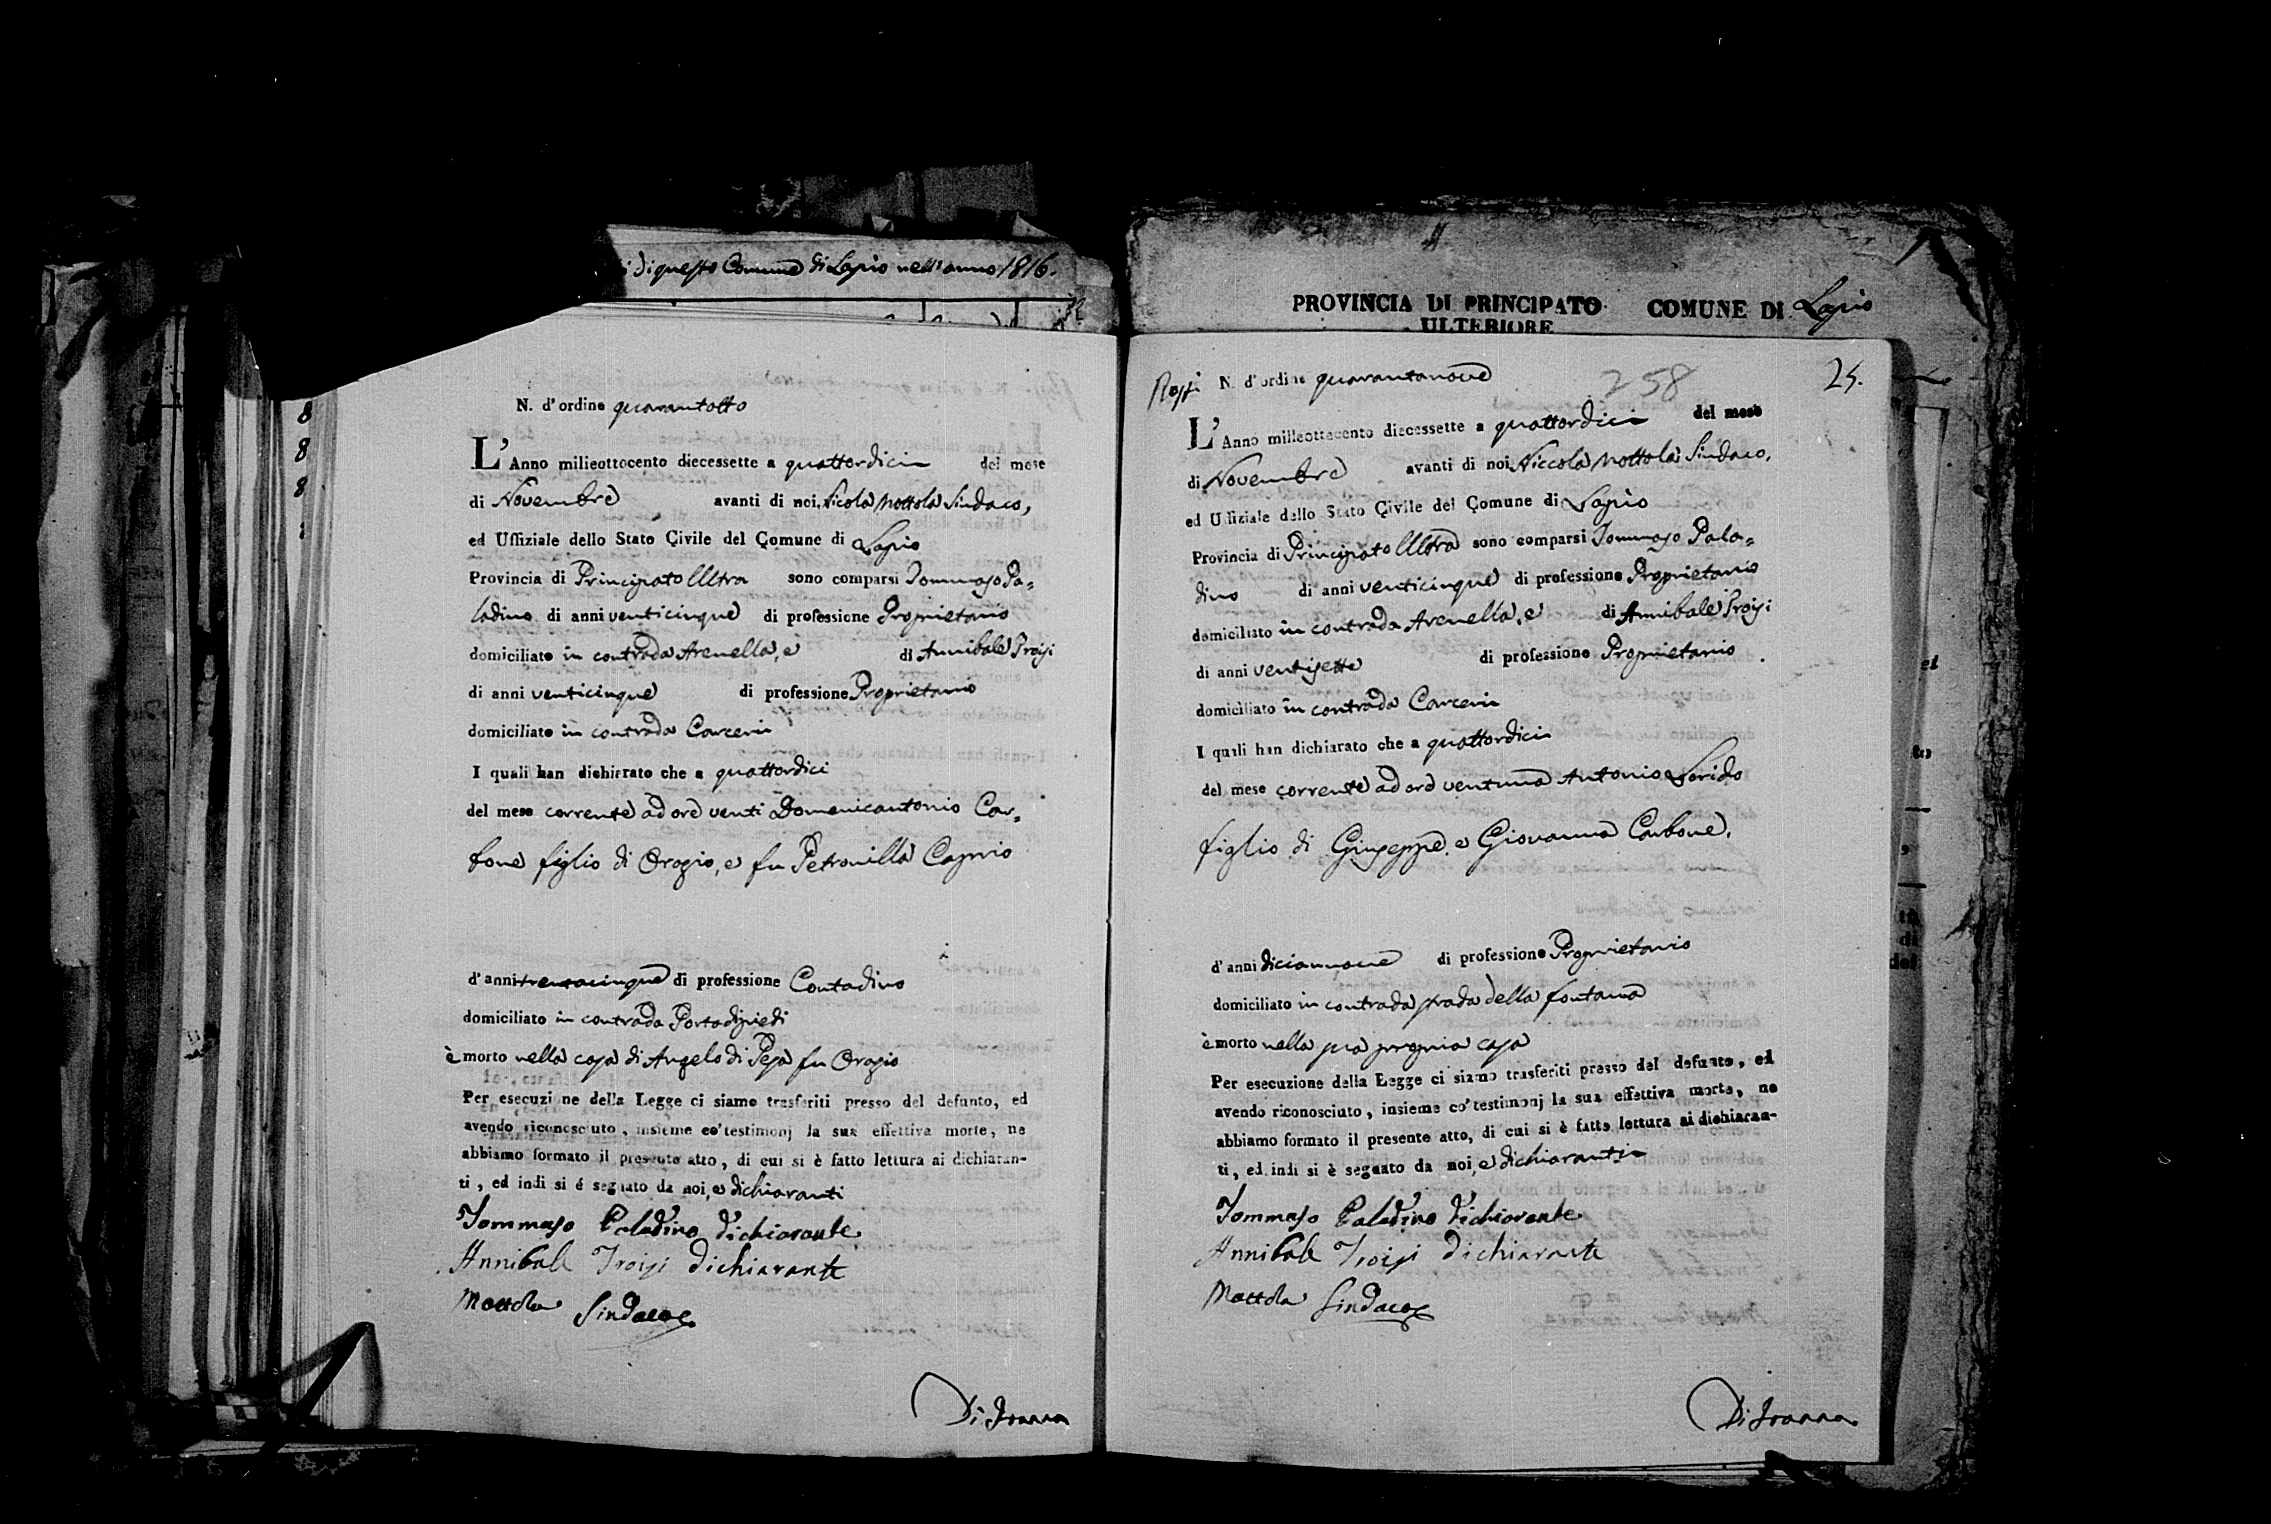 i di questo Comune di Lapio nell'anno 1816.
8
8
8
N. d'ordine quarantotto
L'Anno milleottocento diecessette a quattordici del mese
di Novembre avanti di noi Nicola Mottola Sindaco,
ed Uffiziale dello Stato Civile del Comune di Lapio
Provincia di Principato Ultra sono comparsi Tommaso Pa=
ladino di anni venticinque di professione Proprietario
domiciliato in contrada Arenella, e di Annibale Troisi
di anni venticinque di professione Proprietario
domiciliato in contrada Carceri
I quali han dichiarato che a quattordici
del mese corrente ad ore venti Domenicantonio Car=
bone figlio di Orazio, e fu Petronilla Caprio
d'anni trentacinque di professione Contadino
domiciliato in contrada Portadipiedi
è morto nella casa di Angelo di Pesa fu Orazio
Per esecuzione della Legge ci siamo trasferiti presso del defunto, ed
avendo riconosciuto, insieme co' testimonj la sua effettiva morte, ne
abbiamo formato il presente atto, di cui si è fatto lettura ai dichiaran-
ti, ed indi si é segnato da noi, e dichiaranti
Tommaso Paladino Dichiarante
Annibale Troisi Dichiarante
Mottola Sindaco
Di Ioanna
PROVINCIA DI PRINCIPATO COMUNE DI Lapio
ULTERIORE
N. d'ordine quarantanove 258 25.
L'Anno milleottocento diecessette a quattordici del mese
di Novembre avanti di noi Niccola Mottola Sindaco,
ed Uffiziale dello Stato Civile del Comune di Lapio
Provincia di Principato Ultra sono comparsi Tommaso Pala=
dino di anni venticinque di professione Proprietario
domiciliato in contrada Arenella, e di Annibale Troisi
di anni ventisette di professione Proprietario
domiciliato in contrada Carceri
I quali han dichiarato che a quattordici
del mese corrente ad ore ventuna Antonio Lorido
figlio di Giuseppe, e Giovanna Carbone,
d'anni diciannove di professione Proprietario
domiciliato in contrada strada della fontana
è morto nella sua propria casa
Per esecuzione della Legge ci siamo trasferiti presso del defunto, ed
avendo riconosciuto, insieme co' testimonj la sua effettiva morte, ne
abbiamo formato il presente atto, di cui si è fatto lettura ai dichiaran-
ti, ed indi si è segnato da noi, e dichiaranti
Tommaso Paladino Dichiarante
Annibale Troisi Dichiarante
Mottola Sindaco
Di Ioanna